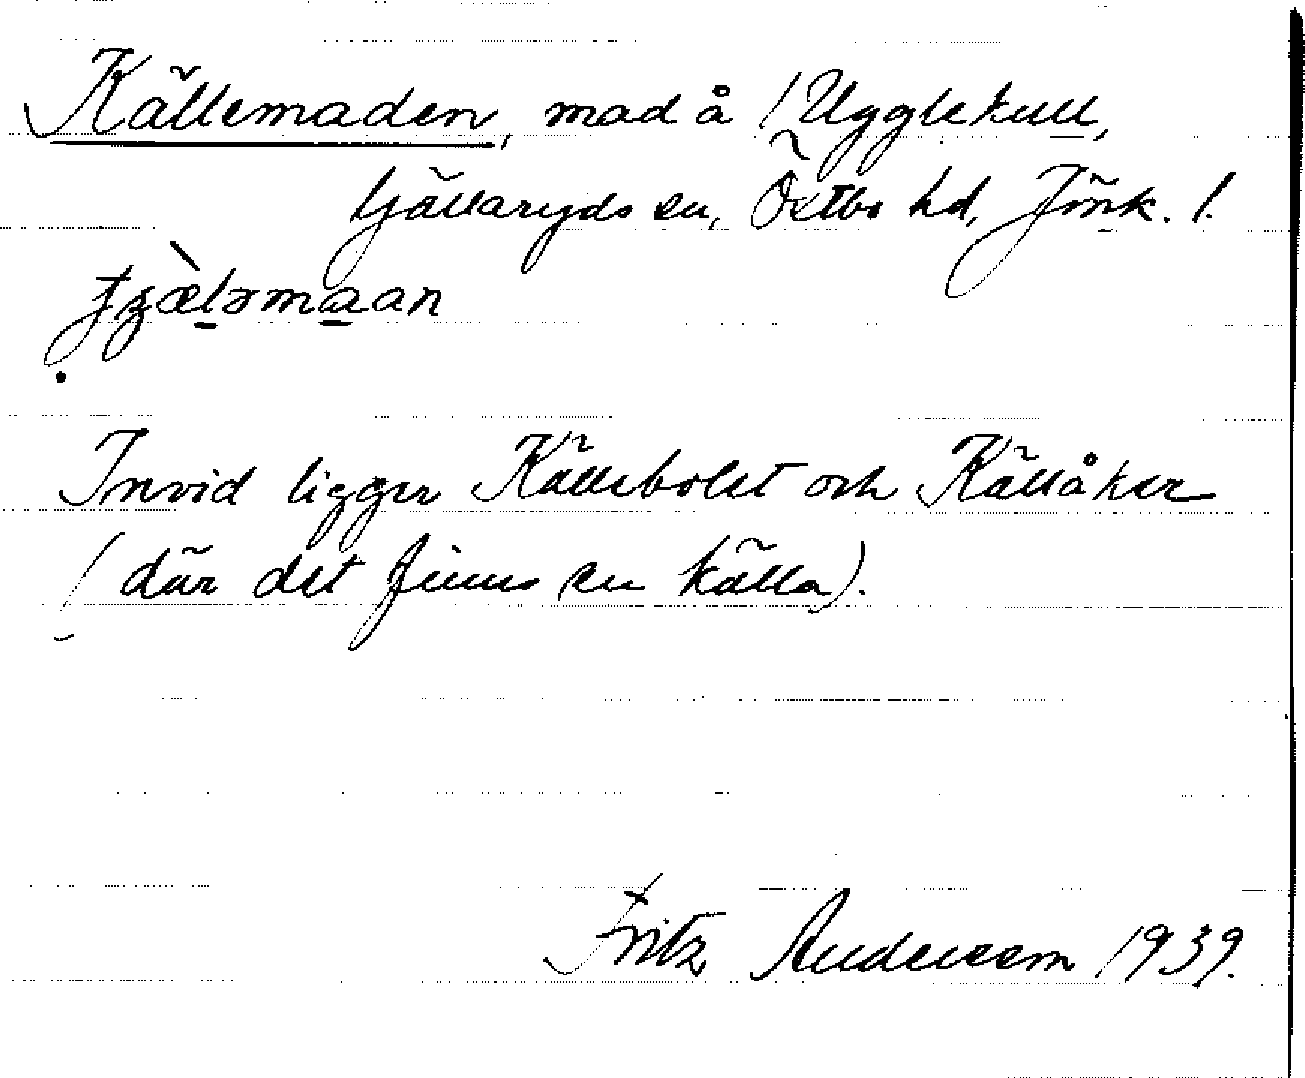 Källemaden, mad å Ugglekull,
Kjällaryds sn, Östbo hd, Jönk. l.
Invid ligger Källebolet och Källåker
(där det finns en källa).
Fritz Andersson 1939.